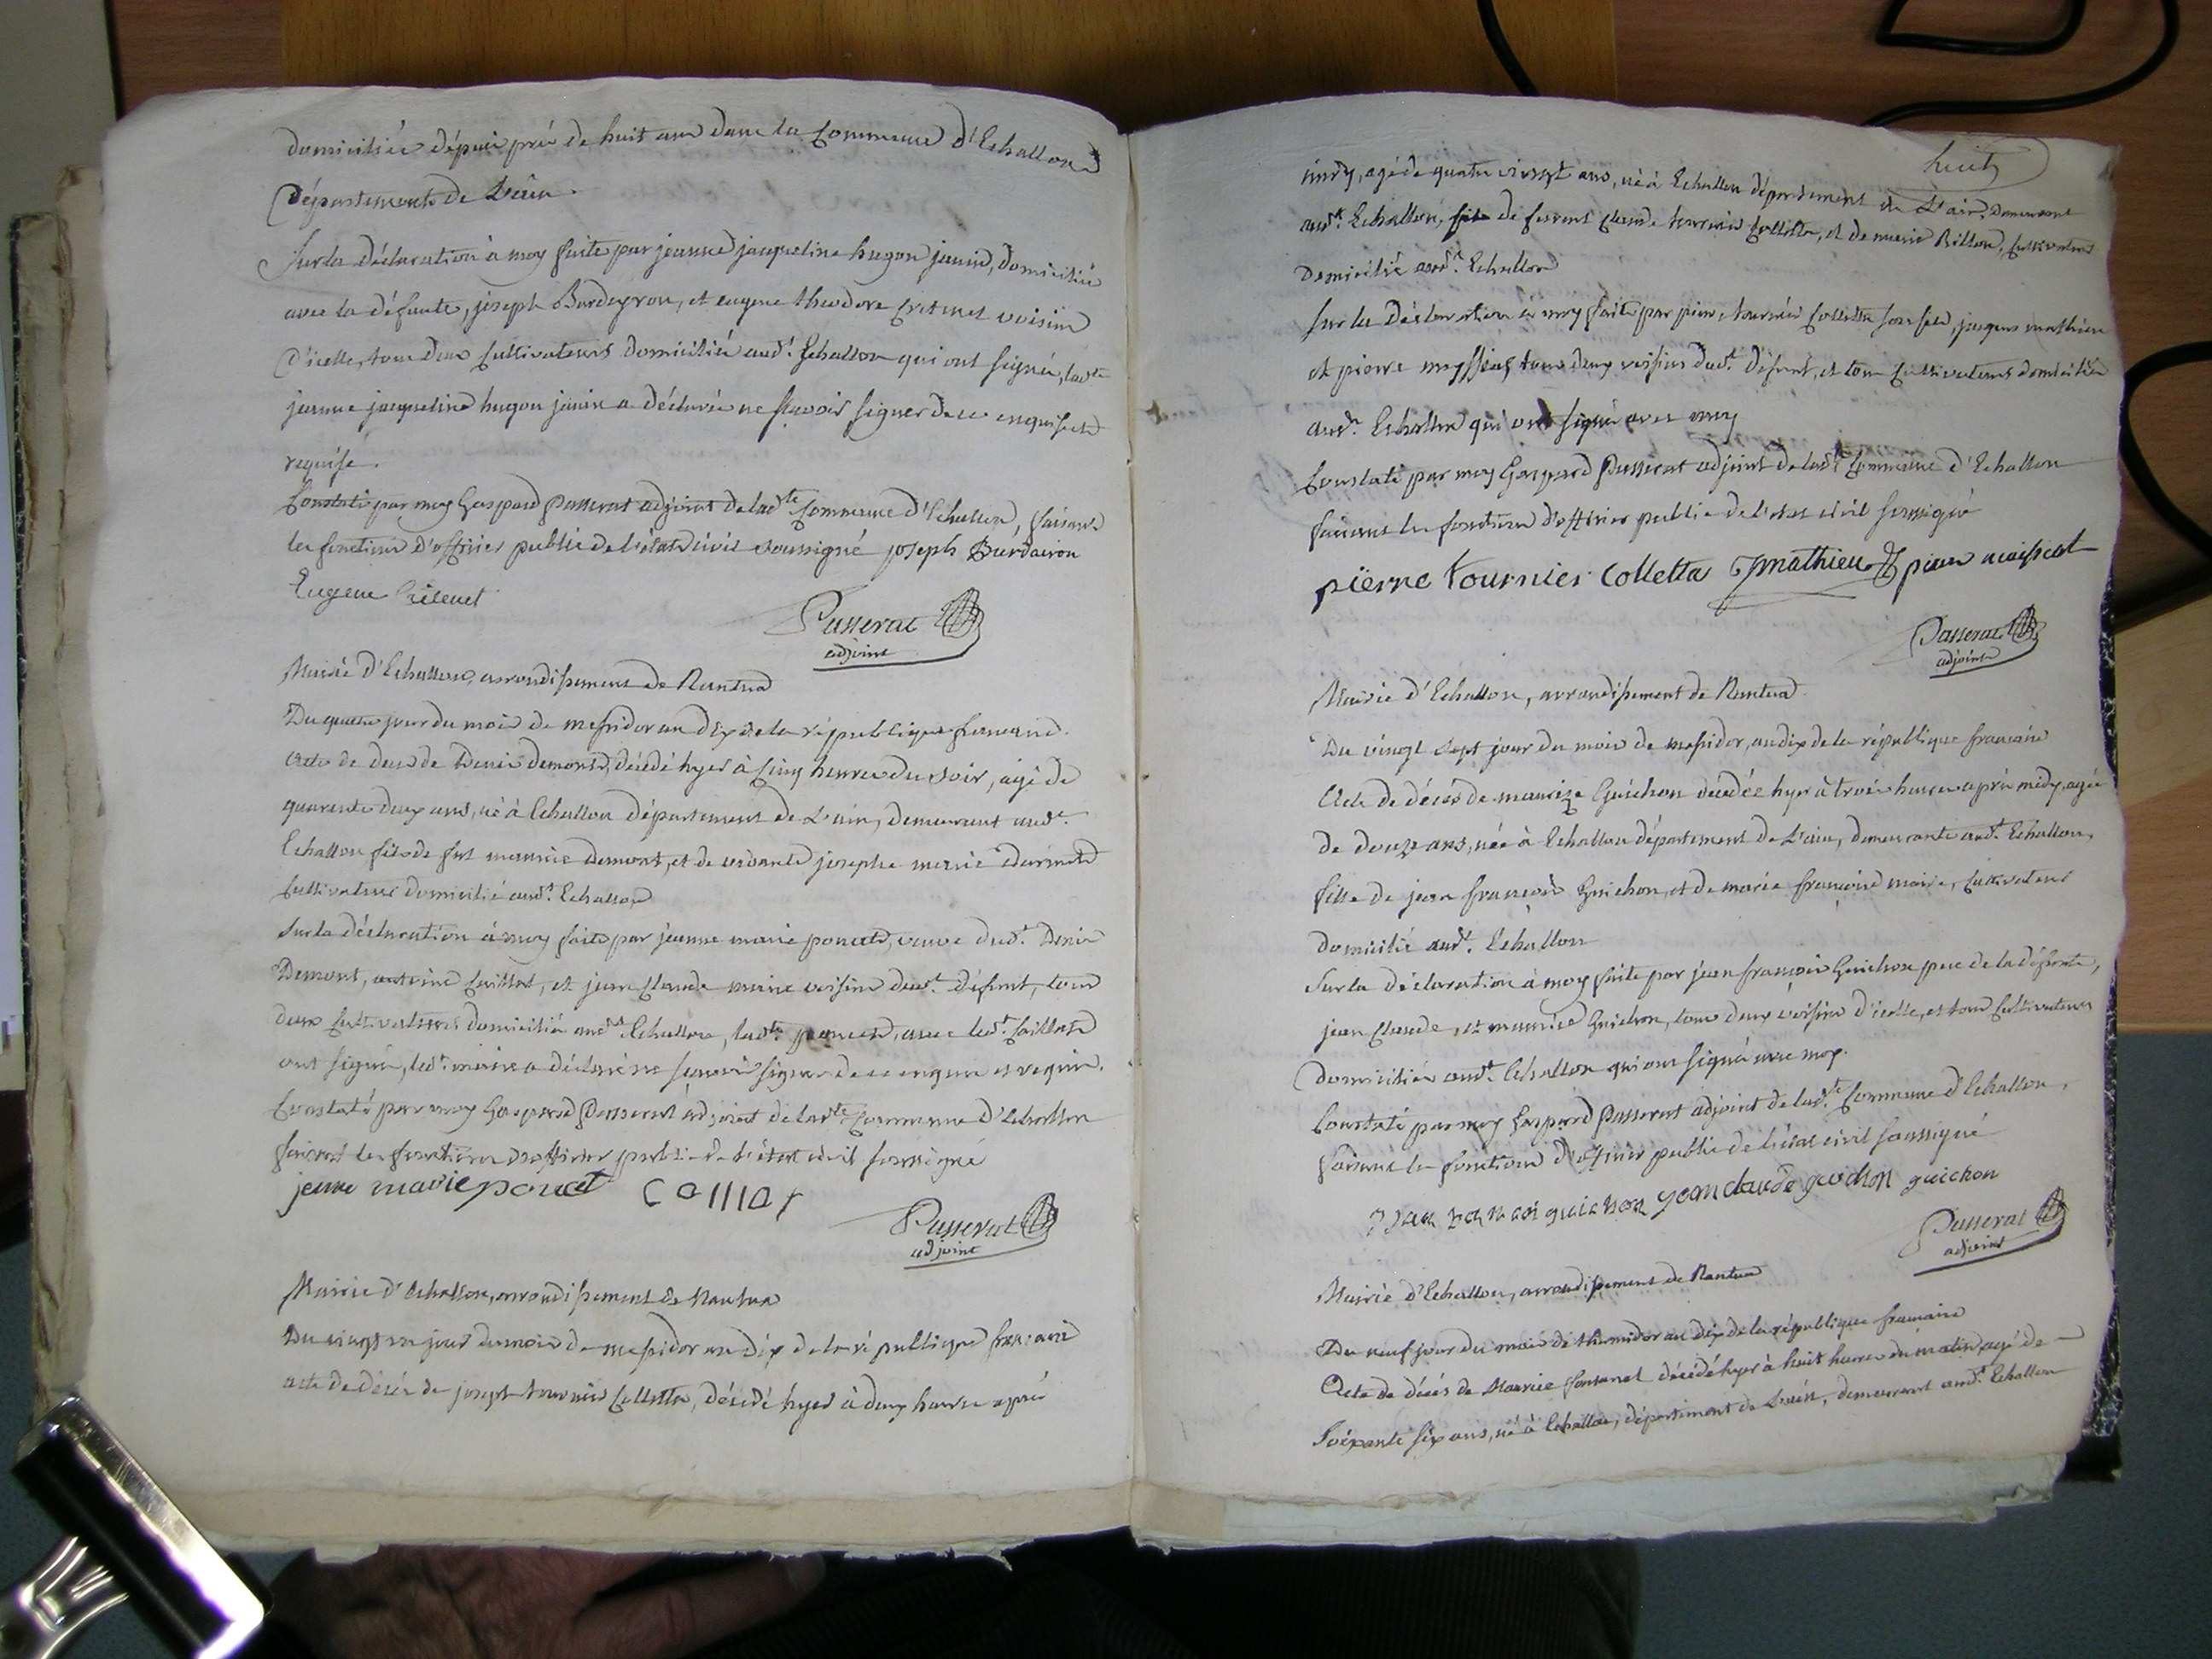 domiciliée dépuis près de huit ans dans la Commune d'Echallon
Département de L'ain.
Sur la déclaration à moy faite par jeanne jacqueline hugon janin, domiciliée
avec la défunte, joseph Burdeyron, et eugene theodore Critinet voisins
d'icelle, tous deux Cultivateurs domiciliés aud.t Echallon qui ont signé, lad.te
jeanne jacqueline hugon janin a déclarée ne sçavoir signer de ce enquise et
requise.
Constaté par moy Gaspard Passerat adjoint de lad.te Commune d'Echallon, faisant
les fonctions d'officier public de l'état civil soussigné joseph Burdairon
Eugene
Passerat
adjoint
Mairie d'Echallon, arrondissement de Nantua
Du quatre jour du mois de messidor an dix de la république francaise.
acte de deces de Denis demont, décédé hyer à cinq heures du soir, agé de
quarante deux ans, né à Echallon département de L'ain, demeurant aud.t
Echallon fils de fut maurice demont, et de vivante josephe marie
Cultivateur domicilié aud.t Echallon
Sur la déclaration à moy faite par jeanne marie poncet, veuve dud.t Denis
Demont, antoine Caillat, et jean Claude maire voisins dud.t défunt, tous
deux Cultivateurs domiciliés aud.t Echallon, lad.te poncet, avec led.t Caillat
ont signé, led.t maire a déclaré ne scavoir signer de ce enquis et requis.
Constaté par moy Gaspard Passerat adjoint de lad.te Commune d'Echallon
faisant les fonctions d'officier public de l'état civil soussigné
jeane marie poncet Callat
Passerat
adjoint
Mairie d'Echallon, arrondissement de Nantua
Du vingt un jour du mois de messidor an dix de la république francaise
acte de décés de joseph tournier Colletta, décédé hyer à deux heures après
huit
midy, agé de quatre vingt ans, né à Echallon département de L'ain, demeurant
aud.t Echallon, fils de feu Claude tournier Colletta, et de marie Billon, Cultivateur
Domicilié aud.t Echallon
Sur la déclaration à moy faite par pierre tournier Colletta son fils, jacques mathieu
et pierre tous deux voisins dud.t défunt, et tous Cultivateurs domiciliés
aud.t Echallon qui ont signé avec moy
Constaté par moy Gaspard Passerat adjoint de lad.te Commune d'Echallon
faisant les fonctions d'officier public de l'état civil soussigné
pierre tournier Colletta J mathieu pierre
Passerat
adjoint
Mairie d'Echallon, arrondissement de Nantua
Du vingt sept jour du mois de messidor, an dix de la république francaise
Acte de décés de maurize Guichon décédée hyer à trois heures après midy, agée
de douze ans, née à Echallon département de L'ain, demeurante aud.t Echallon,
fille de jean françois Guichon, et de marie françoise maire, Cultivateur
domicilié aud.t Echallon
Sur la déclaration à moy faite par jean françois Guichon pere de la défunte,
jean Claude, et maurice Guichon, tous deux voisins d'icelle, et tous Cultivateurs
domiciliés aud.t Echallon qui ont signé avec moy.
Constaté par moy Gaspard Passerat adjoint de lad.te Commune d'Echallon,
faisant les fonctions d'officier public de l'état civil soussigné
guichon jean claude guichon guichon
Passerat
adjoint
Mairie d'Echallon, arrondissement de Nantua
Du neuf jour du mois de thermidor an dix de la république francaise
Acte de décés de Maurice décédé hyer à huit heures du matin, agé de
Soixante six ans, né à Echallon, département de L'ain, demeurant aud.t Echallon